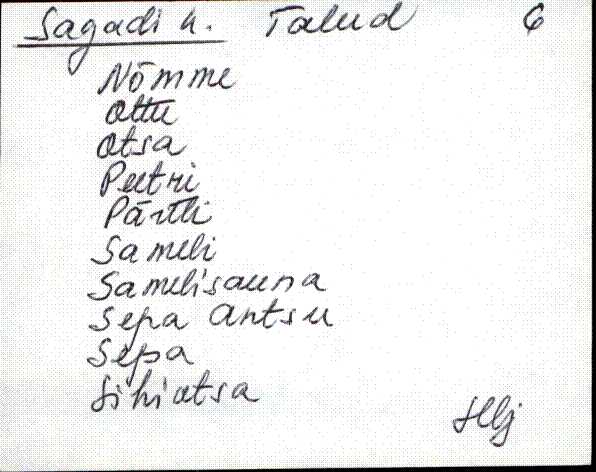 Sagadi k. Talud 6
Nõmme
Ottu
Otsa
Peetri
Pärtli
Sameli
Samelisauna
Sepa Antsu
Sepa
Sihiotsa